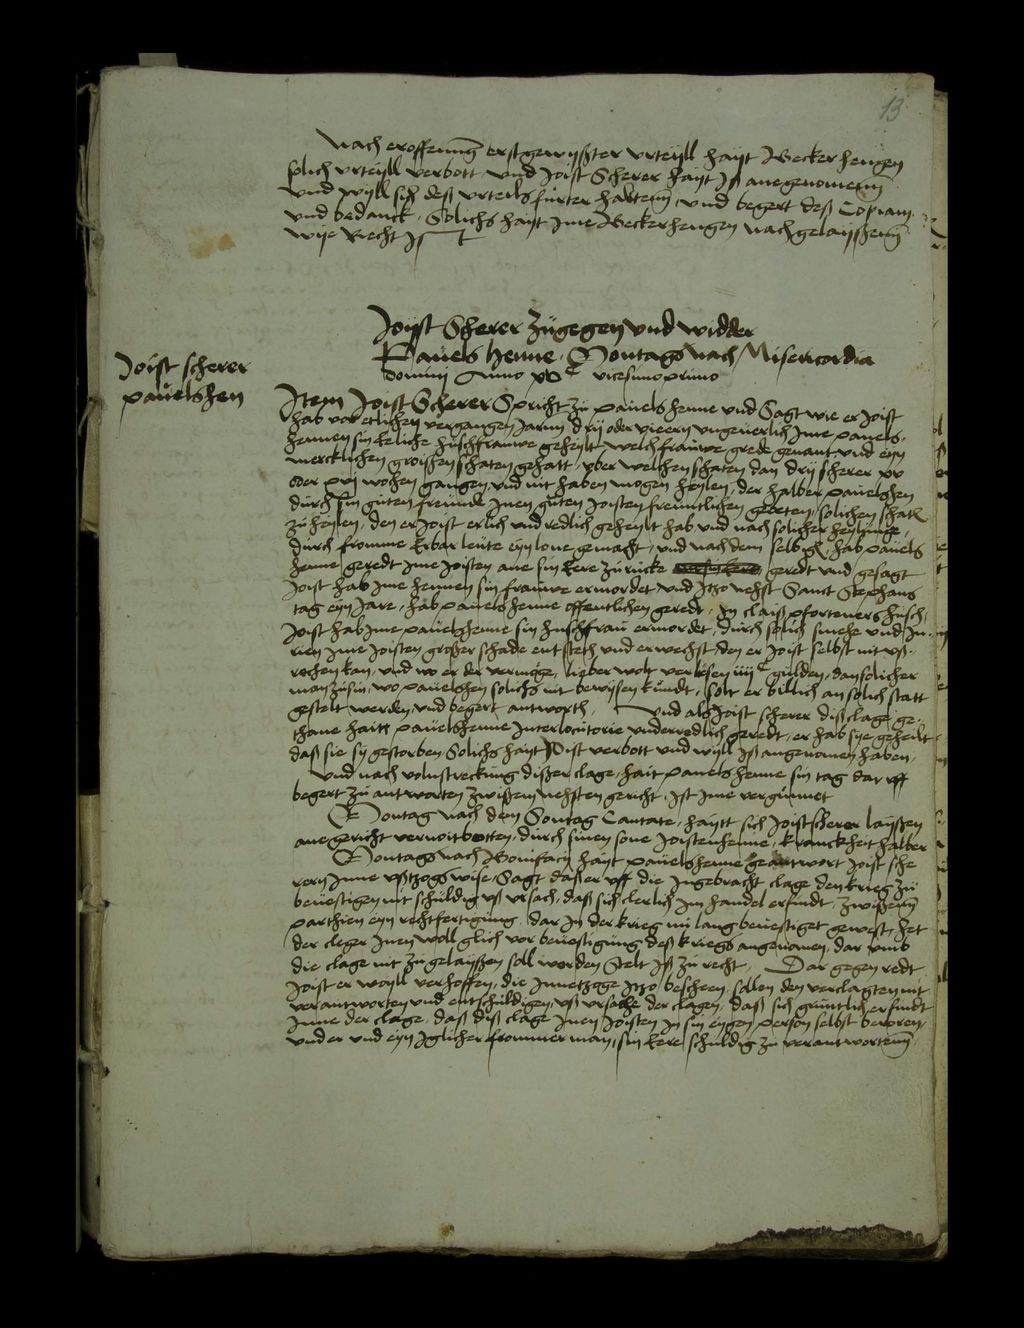 13
Nach eroffenung erstgewyster urteyll hayt Becker hengen
solich urteyll verbott und Joist Scherer hayt Iß anegenomenn
und wyll sich deß urteils fürter haltenn, und begert deß Copiam
und bedanck, Solichs hayt Ime Beckerhengen nachgelayßenn
wye Recht Ist
Joyst Scherer zugegen und widder
Pauels henne, Montags nach Misericordia
domini Anno xvc vicesimoprimo
Joist scherer
pauelshen
Item Joist Scherer Spricht zu pauels henne und Sagt wie er Joist
hab vor etlichen vergangen Jarnn drij oder vieern ungeuerlich Ime pauels-
hennen sin Eeliche husfrauwe geheylt, welch frauwe grede genant und eyn
mercklichen groißen schaten gehatt, uber welchen schaten dan drij scherer xv
oder xvj wochen gangen und nit haben mogen heylen, der halber pauelshen
durch sin guten freunde Inen guten Joisten freuntlichen gebeten, solichen schate
zu heylen, den er Joist erlich und redlich geheylt hab und nach solicher heylunge,
durch fromme Erbar leute eyn lone gemacht, und nach dem selbigen, hab pauels
henne geredt Ime Joisten ane sin Eere zu rucke geredt und gesagt
Joist hab Ime hennen sin frauwe ermordet und Itzo nehst Sanct Stephans
tag eyn Jare, hab pauels henne offentlichen geredt, In claiß pforteners husch,
Joist hab Ime pauelshenne sin husfrau ermordet, durch solich smehe und Iniu-
rien Ime Joisten großer schade entsteeh und erwechst, den er Joist selbst nit uß-
rechen kan, und wo er der vermoge, lieber wolt verlesen iiiic gulden, dan solicher
man zusin, wo pauelshen solichs nit bewysen kundt, solt er billich an solich statt
gestelt werden, und begert antworth, Und als Joist scherer diß clage ge-
thane haitt pauelshenne Interlocutorie underredlich geredt, er hab sye geheilt
daß sie sy gestorben, Solichs hayt Joist verbott und wyll Iß angenomen haben,
Und nach volnstreckung dißer clage, hait pauels henne sin tag dar uff
begert zu antworten zwißem nehsten gericht, Ist Ime vergunnet
Montag nach dem Sontag Cantate, haytt sich Joist scherer layßen
ane gericht vernoitbotten, durch sinen sone Joistenhenne, kranckheit halber
Montags nach Bonifacij hayt pauelshenne geantwort Joist sche
rern Inne ußtzogs wise, Sagt daß er uff die Ingebracht clage den krieg zu
beuestigen nit schuldig uß ursach, daß sich clerlich Im handel erfindt, zwißenn
parthien eyn rechtfertigung, dar In der krieg nu lang beuestiget gewest, het
der cleger Inen woll glich vor beuestigung deß kriegs angenomen, dar umb
die clage nit zu gelayßen soll worden Stelt Iß zu recht, Dar gegen redt
Joist er woyll verhoffen, die Innetzoge Itzo bescheen, sollen den verclagten nit
verantworten und entschuldigen, uß ursache der clagen, daß sich gruntlich erfindt
Inne der clage, daß diß clage Inen Joisten In sin eygen person selbst beroren,
und er und eyn Iglicher frommer man, sin Eere schuldig zu verantwortenn